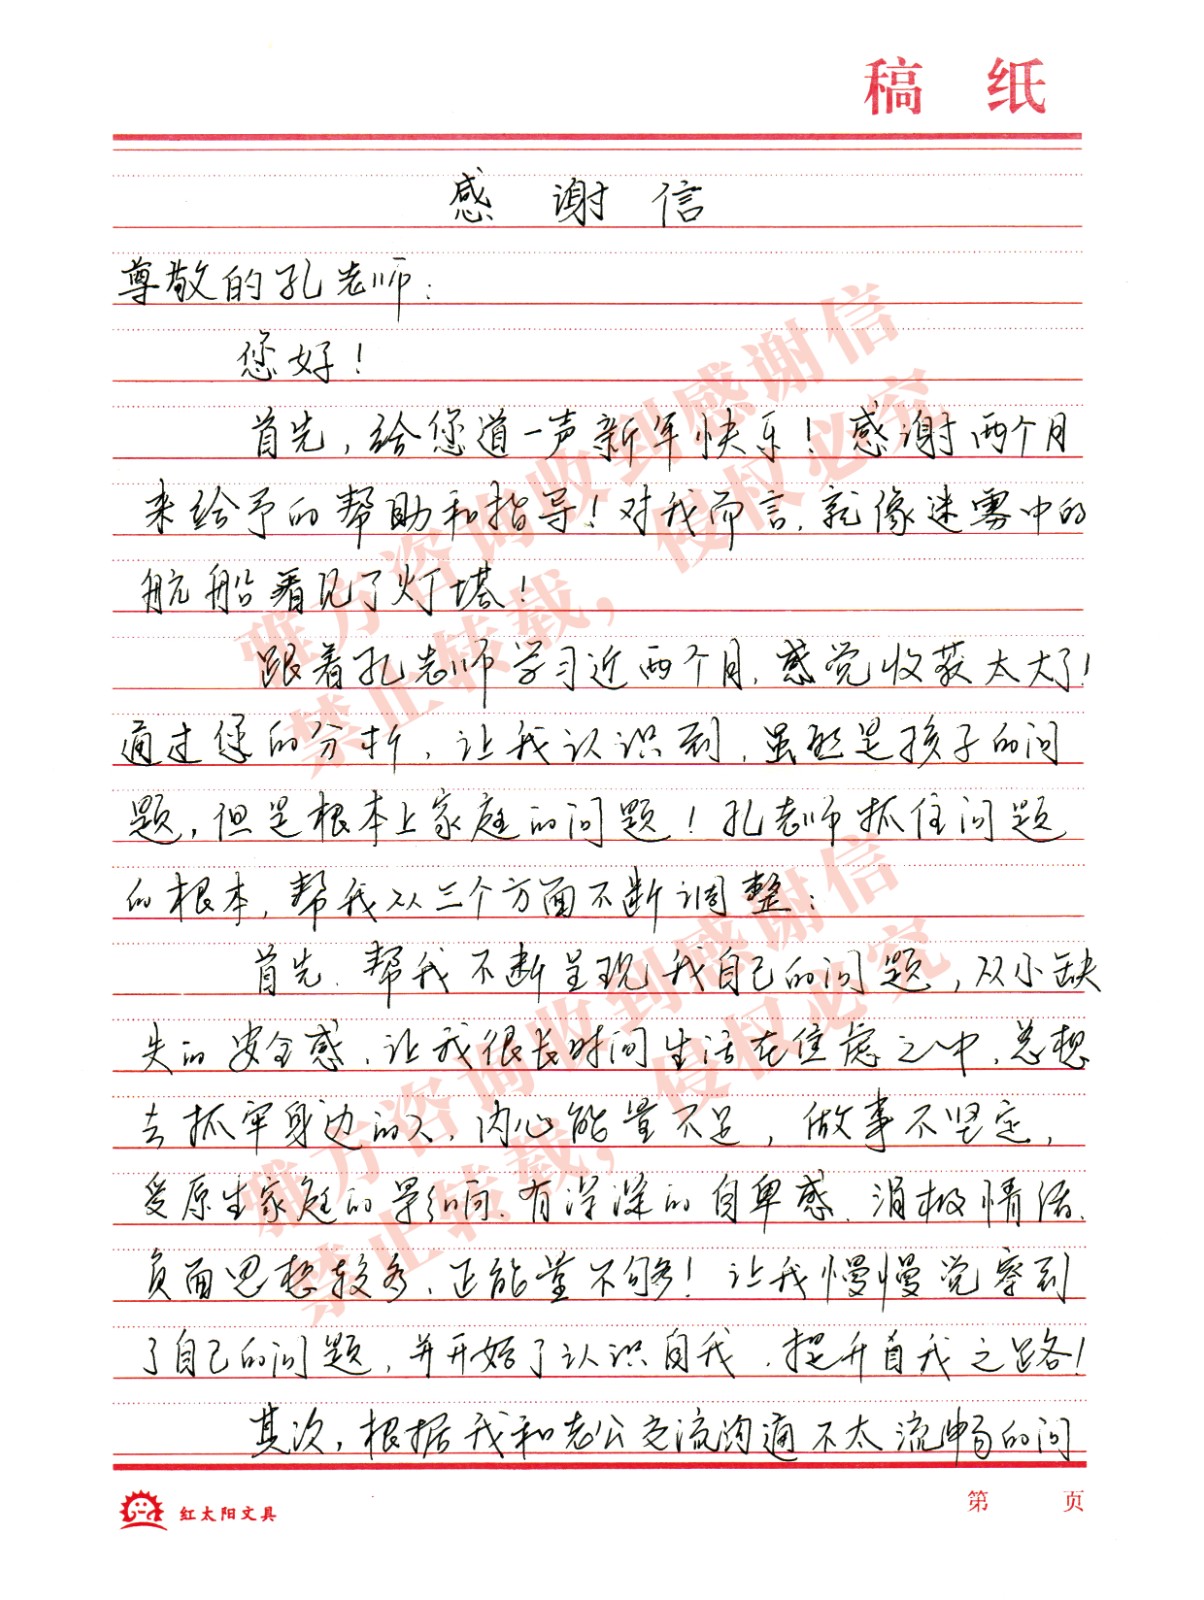 稿 纸
感谢信
尊敬的孔老师：
您好！
首先，给您道一声新年快乐！感谢两个月
来给予的帮助和指导！对我而言，就像迷雾中的
航船看见了灯塔！
跟着孔老师学习近两个月，感觉收获太大了！
通过您的分析，让我认识到，虽然是孩子的问
题，但是根本上家庭的问题！孔老师抓住问题
的根本，帮我从三个方面不断调整：
首先，帮我不断呈现我自己的问题，从小缺
失的安全感，让我很长时间生活在焦虑之中，总想
去抓牢身边的人，内心能量不足，做事不坚定，
受原生家庭的影响，有深深的自卑感，消极情绪、
负面思想较多，正能量不够多！让我慢慢觉察到
了自己的问题，并开始了认识自我，提升自我之路！
其次，根据我和老公交流沟通不太流畅的问
雅方咨询收到感谢信
禁止转载，侵权必究
雅方咨询收到感谢信
禁止转载，侵权必究
红太阳文具
第 页